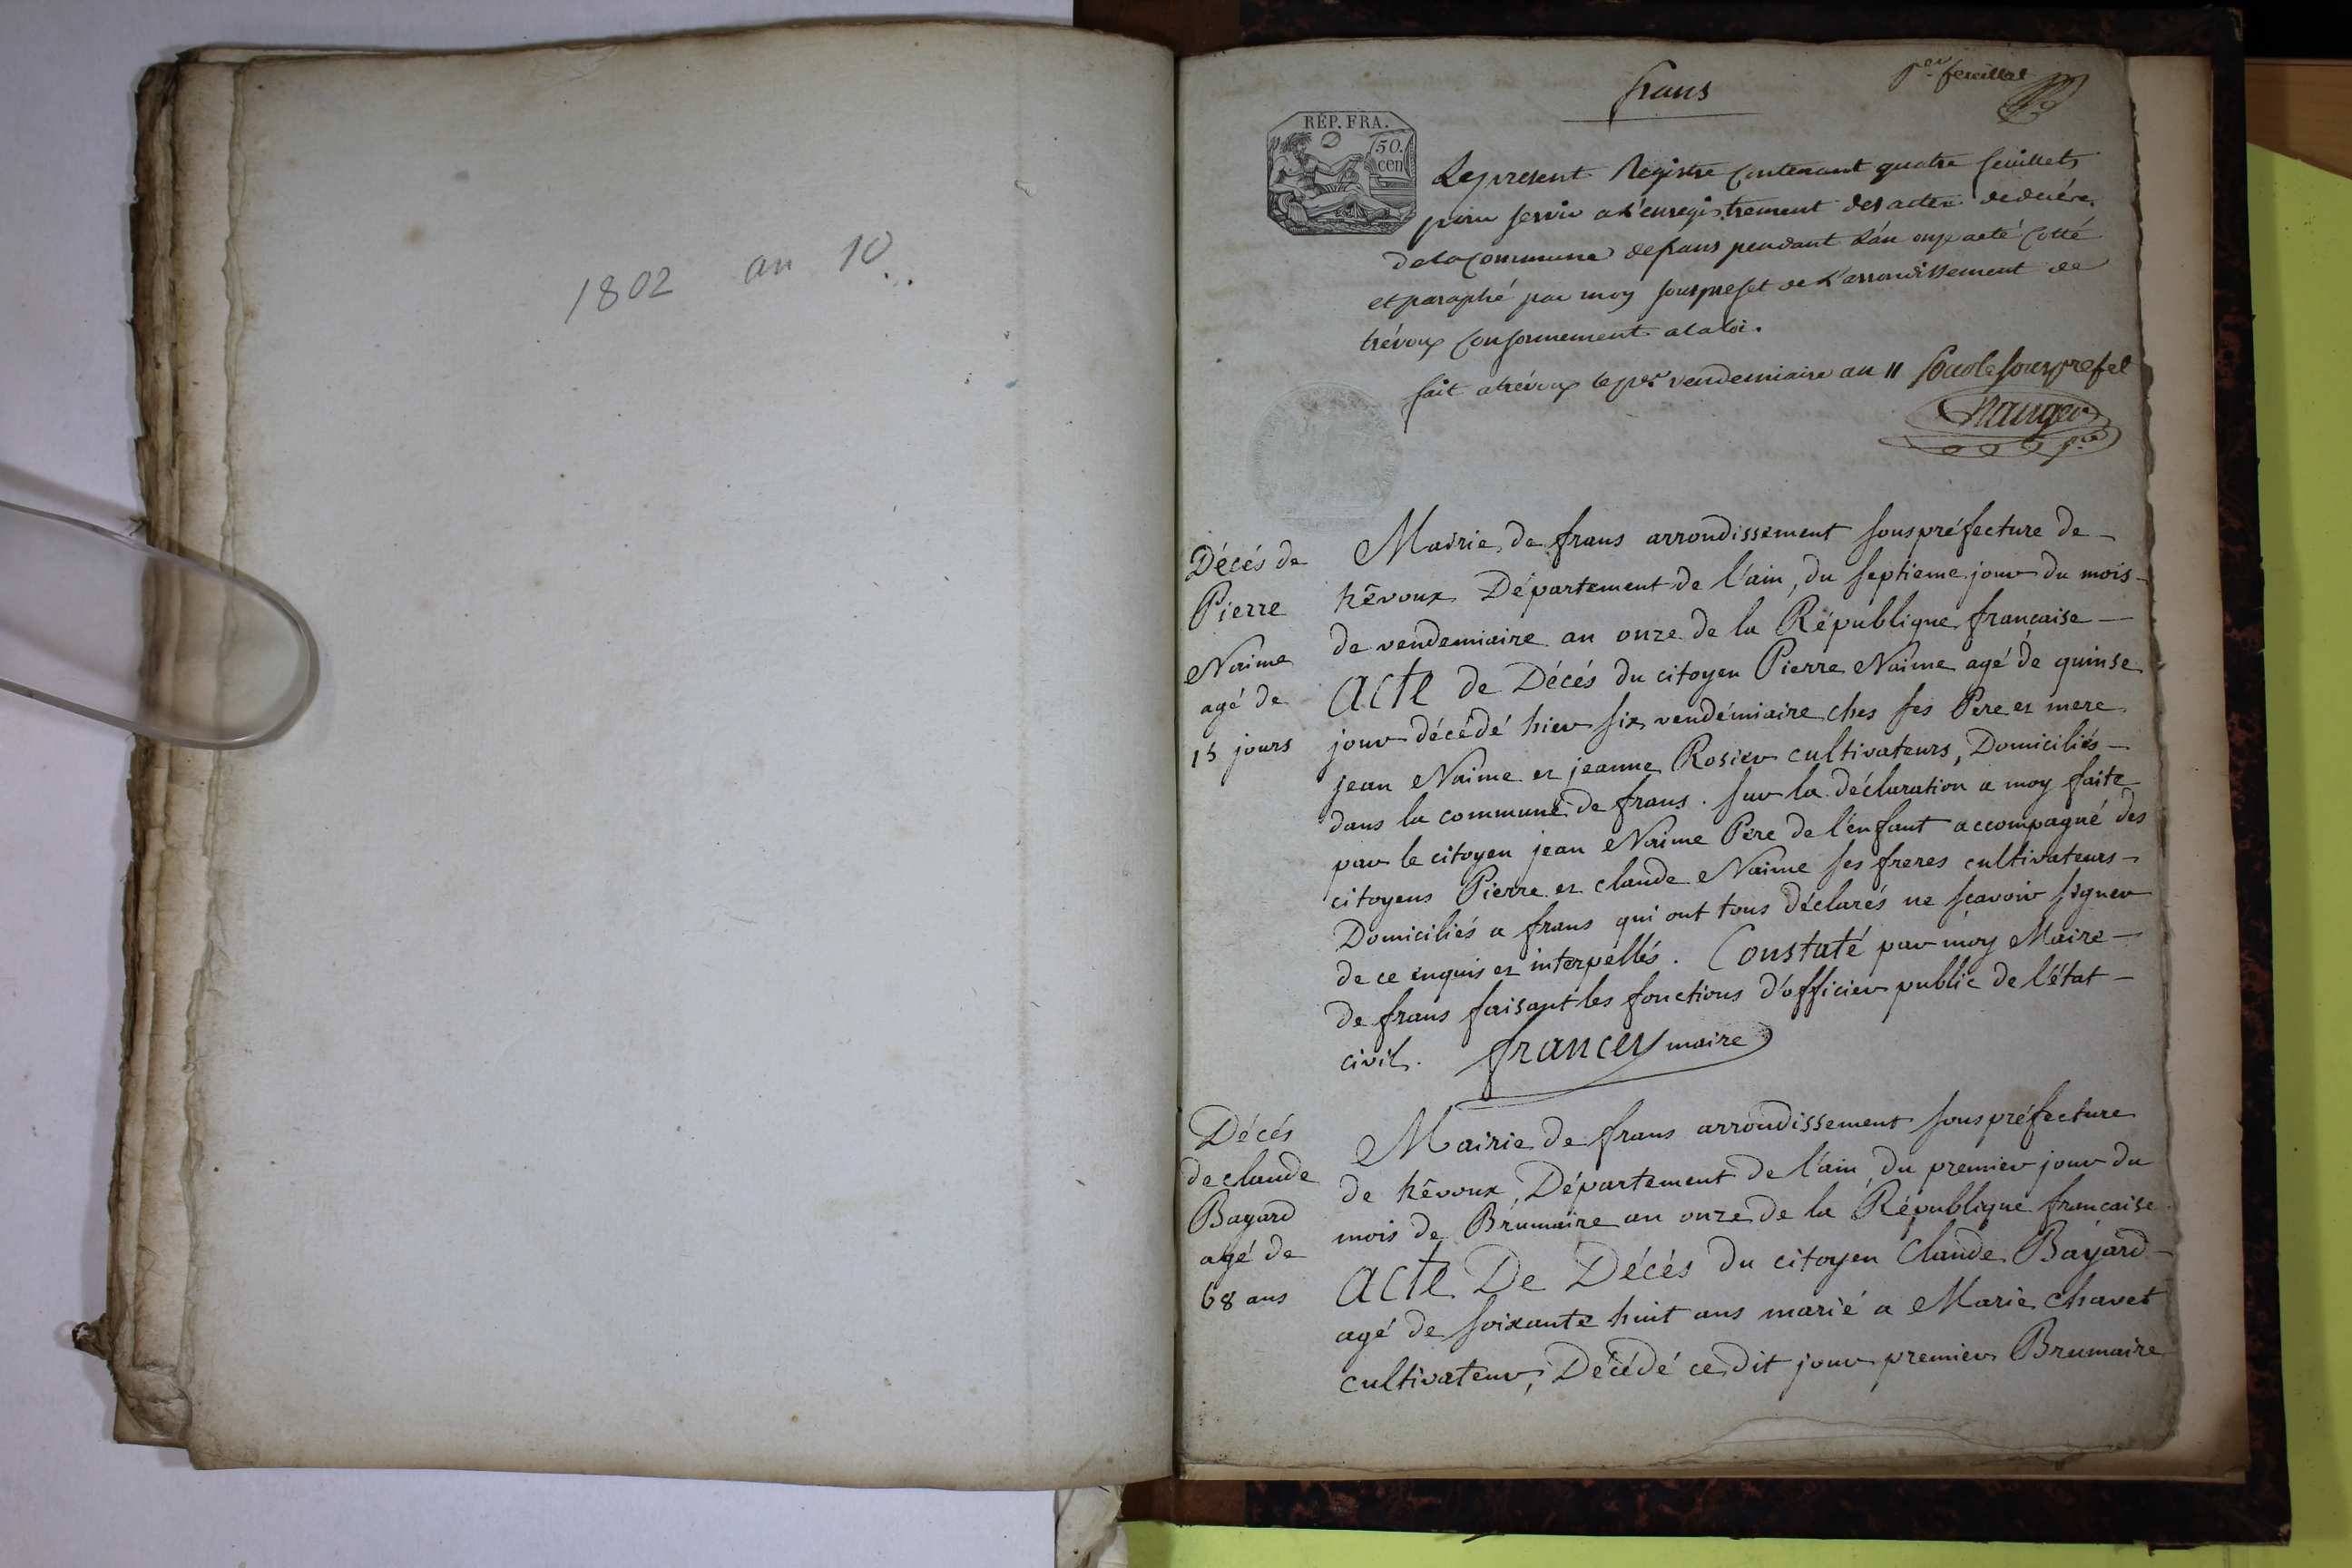 1802 an 10
frans
per feuillet
RÉP. FRA.
50.
cen
Le present Registre contenant quatre feuillets
pour servir a l'enregistrement des actes de décès
de la commune de frans pendant l'an onze a eté cotté
et paraphé par moy sous prefet de l'arrondissement de
trévoux conformement a la loi.
fait a trévoux le per vendemiaire an 11 sous prefet
Décés de
Pierre
Naime
agé de
15 jours
Mairie de frans arrondissement sous préfecture de
trévoux Département de l'ain, du septieme jour du mois
de vendemiaire an onze de la République française
Acte de Décés du citoyen Pierre Naime agé de quinse
jour décédé hier six vendémiaire ches ses Pere et mere
jean Naime et jeanne Rosier cultivateurs, Domiciliés
dans la commune de frans. sur la déclaration a moy faite
par le citoyen jean Naime Pere de l'enfant accompagné des
citoyens Pierre et claude Naime ses freres cultivateurs
Domiciliés a frans qui ont tous déclarés ne sçavoir signer
de ce enquis et interpellés. Constaté par moy Maire
de frans faisant les fonctions d'officier public de l'état
civil. francey maire
Décés
de claude
Bayard
agé de
68 ans
Mairie de frans arrondissement sous préfecture
de trévoux, Département de l'ain du premier jour du
mois de Brumaire an onze de la République française
Acte De Décés du citoyen Claude Bayard
agé de soixante huit ans marié a Marie chavet
cultivateur, Décédé ce dit jour premier Brumaire